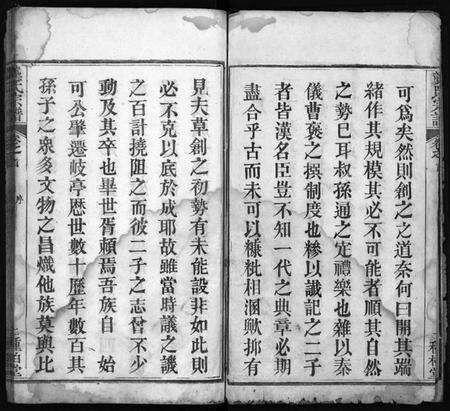 可爲矣然則創之之道奈何曰開其端
緒作其規模其必不可能者順其自然
之勢已耳叔孫通之定禮樂也雜以秦
儀曹褒之撰制度也糝以讖記之二子
者皆漢名臣豈不知一代之典章必期
盡合乎古而未可以糠枇相溷歟抑有
見夫草創之初勢有未能設非如此則
必不克以底於成耶故雖當時議之譏
之百計撓阻之而彼二子之志付不少
動及其卒也畢世胥頼焉吾族自 始
可公肇遷岐亭歴世數十歷年數百其
孫子之衆多文物之昌熾他族莫與比
氏宗譜
卷之首
序